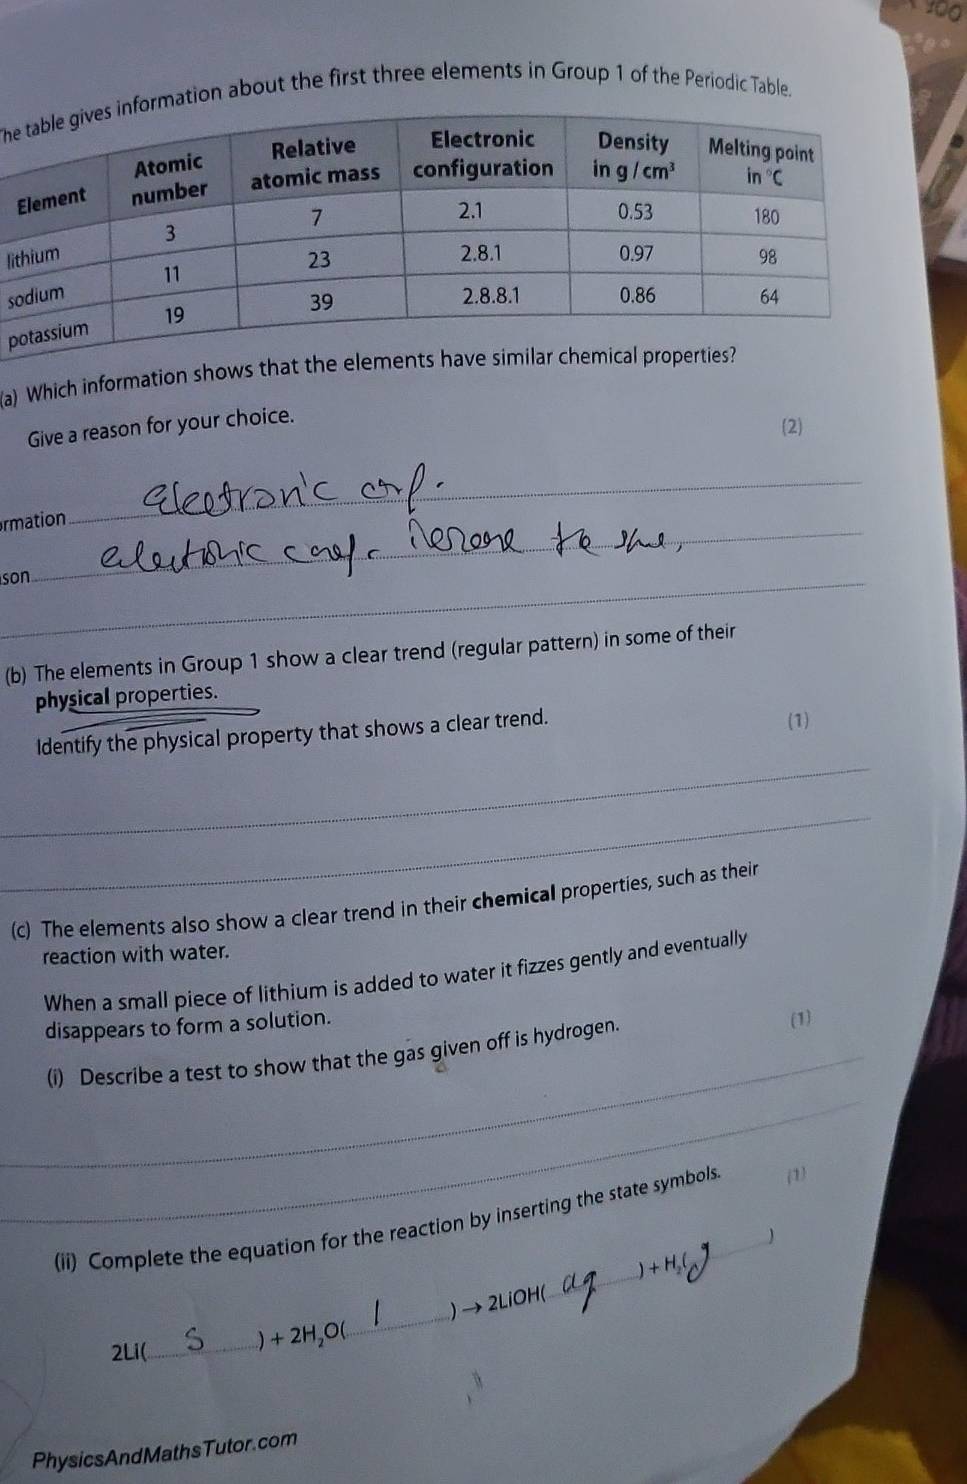 100
The table gives information about the first three elements in Group 1 of the Periodic Table.
Element Atomic number Relative atomic mass Electronic configuration Density in g / cm³ Melting point in °C
lithium 3 7 2.1 0.53 180
sodium 11 23 2.8.1 0.97 98
potassium 19 39 2.8.8.1 0.86 64
(a) Which information shows that the elements have similar chemical properties?
Give a reason for your choice.
(2)
ormation electronic
son electronic conf.
(b) The elements in Group 1 show a clear trend (regular pattern) in some of their
physical properties.
Identify the physical property that shows a clear trend.
(1)
(c) The elements also show a clear trend in their chemical properties, such as their
reaction with water.
When a small piece of lithium is added to water it fizzes gently and eventually
disappears to form a solution.
(i) Describe a test to show that the gas given off is hydrogen.
(1)
(ii) Complete the equation for the reaction by inserting the state symbols.
(1)
2Li( s ) + 2H₂O( l ) → 2LiOH( aq ) + H₂( g )
PhysicsAndMathsTutor.com